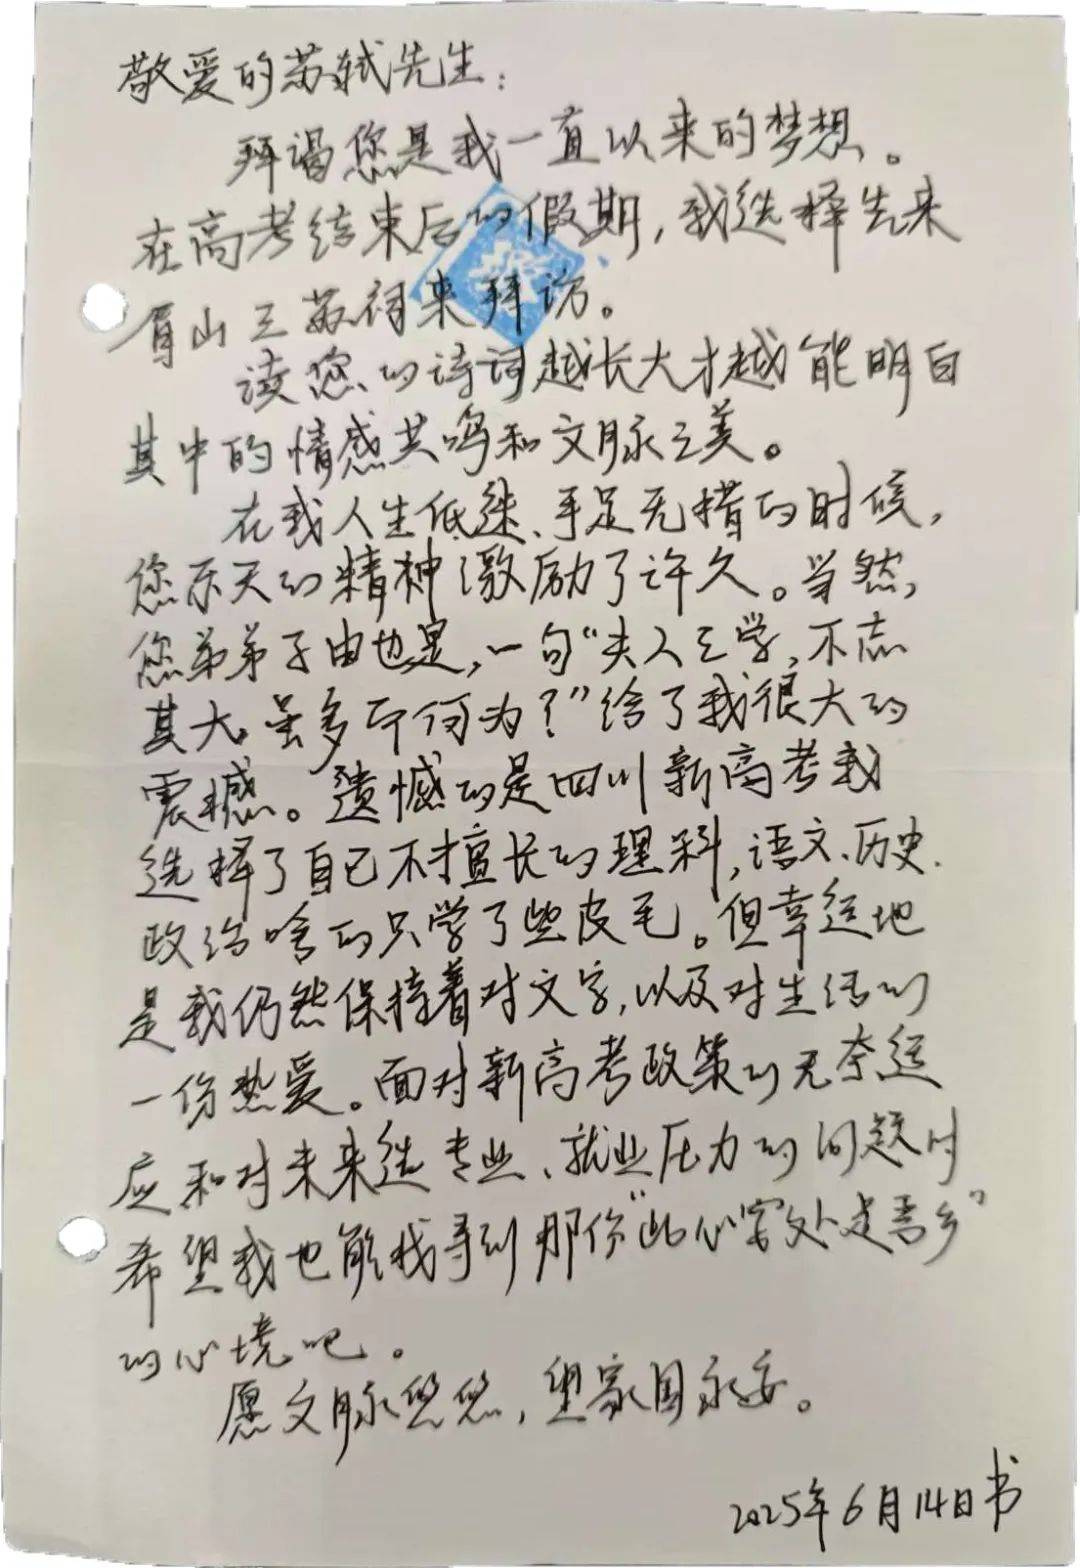 敬爱的苏轼先生：
拜谒您是我一直以来的梦想。
在高考结束后的假期，我选择先来
眉山三苏祠来拜访。
读您的诗词越长大才越能明白
其中的情感共鸣和文脉之美。
在我人生低迷、手足无措的时候，
您乐天的精神激励了许久。当然，
您弟弟子由也是，一句“夫人之学，不志
其大，虽多而何为？”给了我很大的
震撼。遗憾的是四川新高考我
选择了自己不擅长的理科，语文、历史、
政治啥的只学了些皮毛。但幸运地
是我仍然保持着对文字，以及对生活的
一份热爱。面对新高考政策的无奈适
应和对未来选专业、就业压力的问题时
希望我也能找寻到那份“此心安处是吾乡”
的心境吧。
愿文脉悠悠，望家国永安。
2025年6月14日书